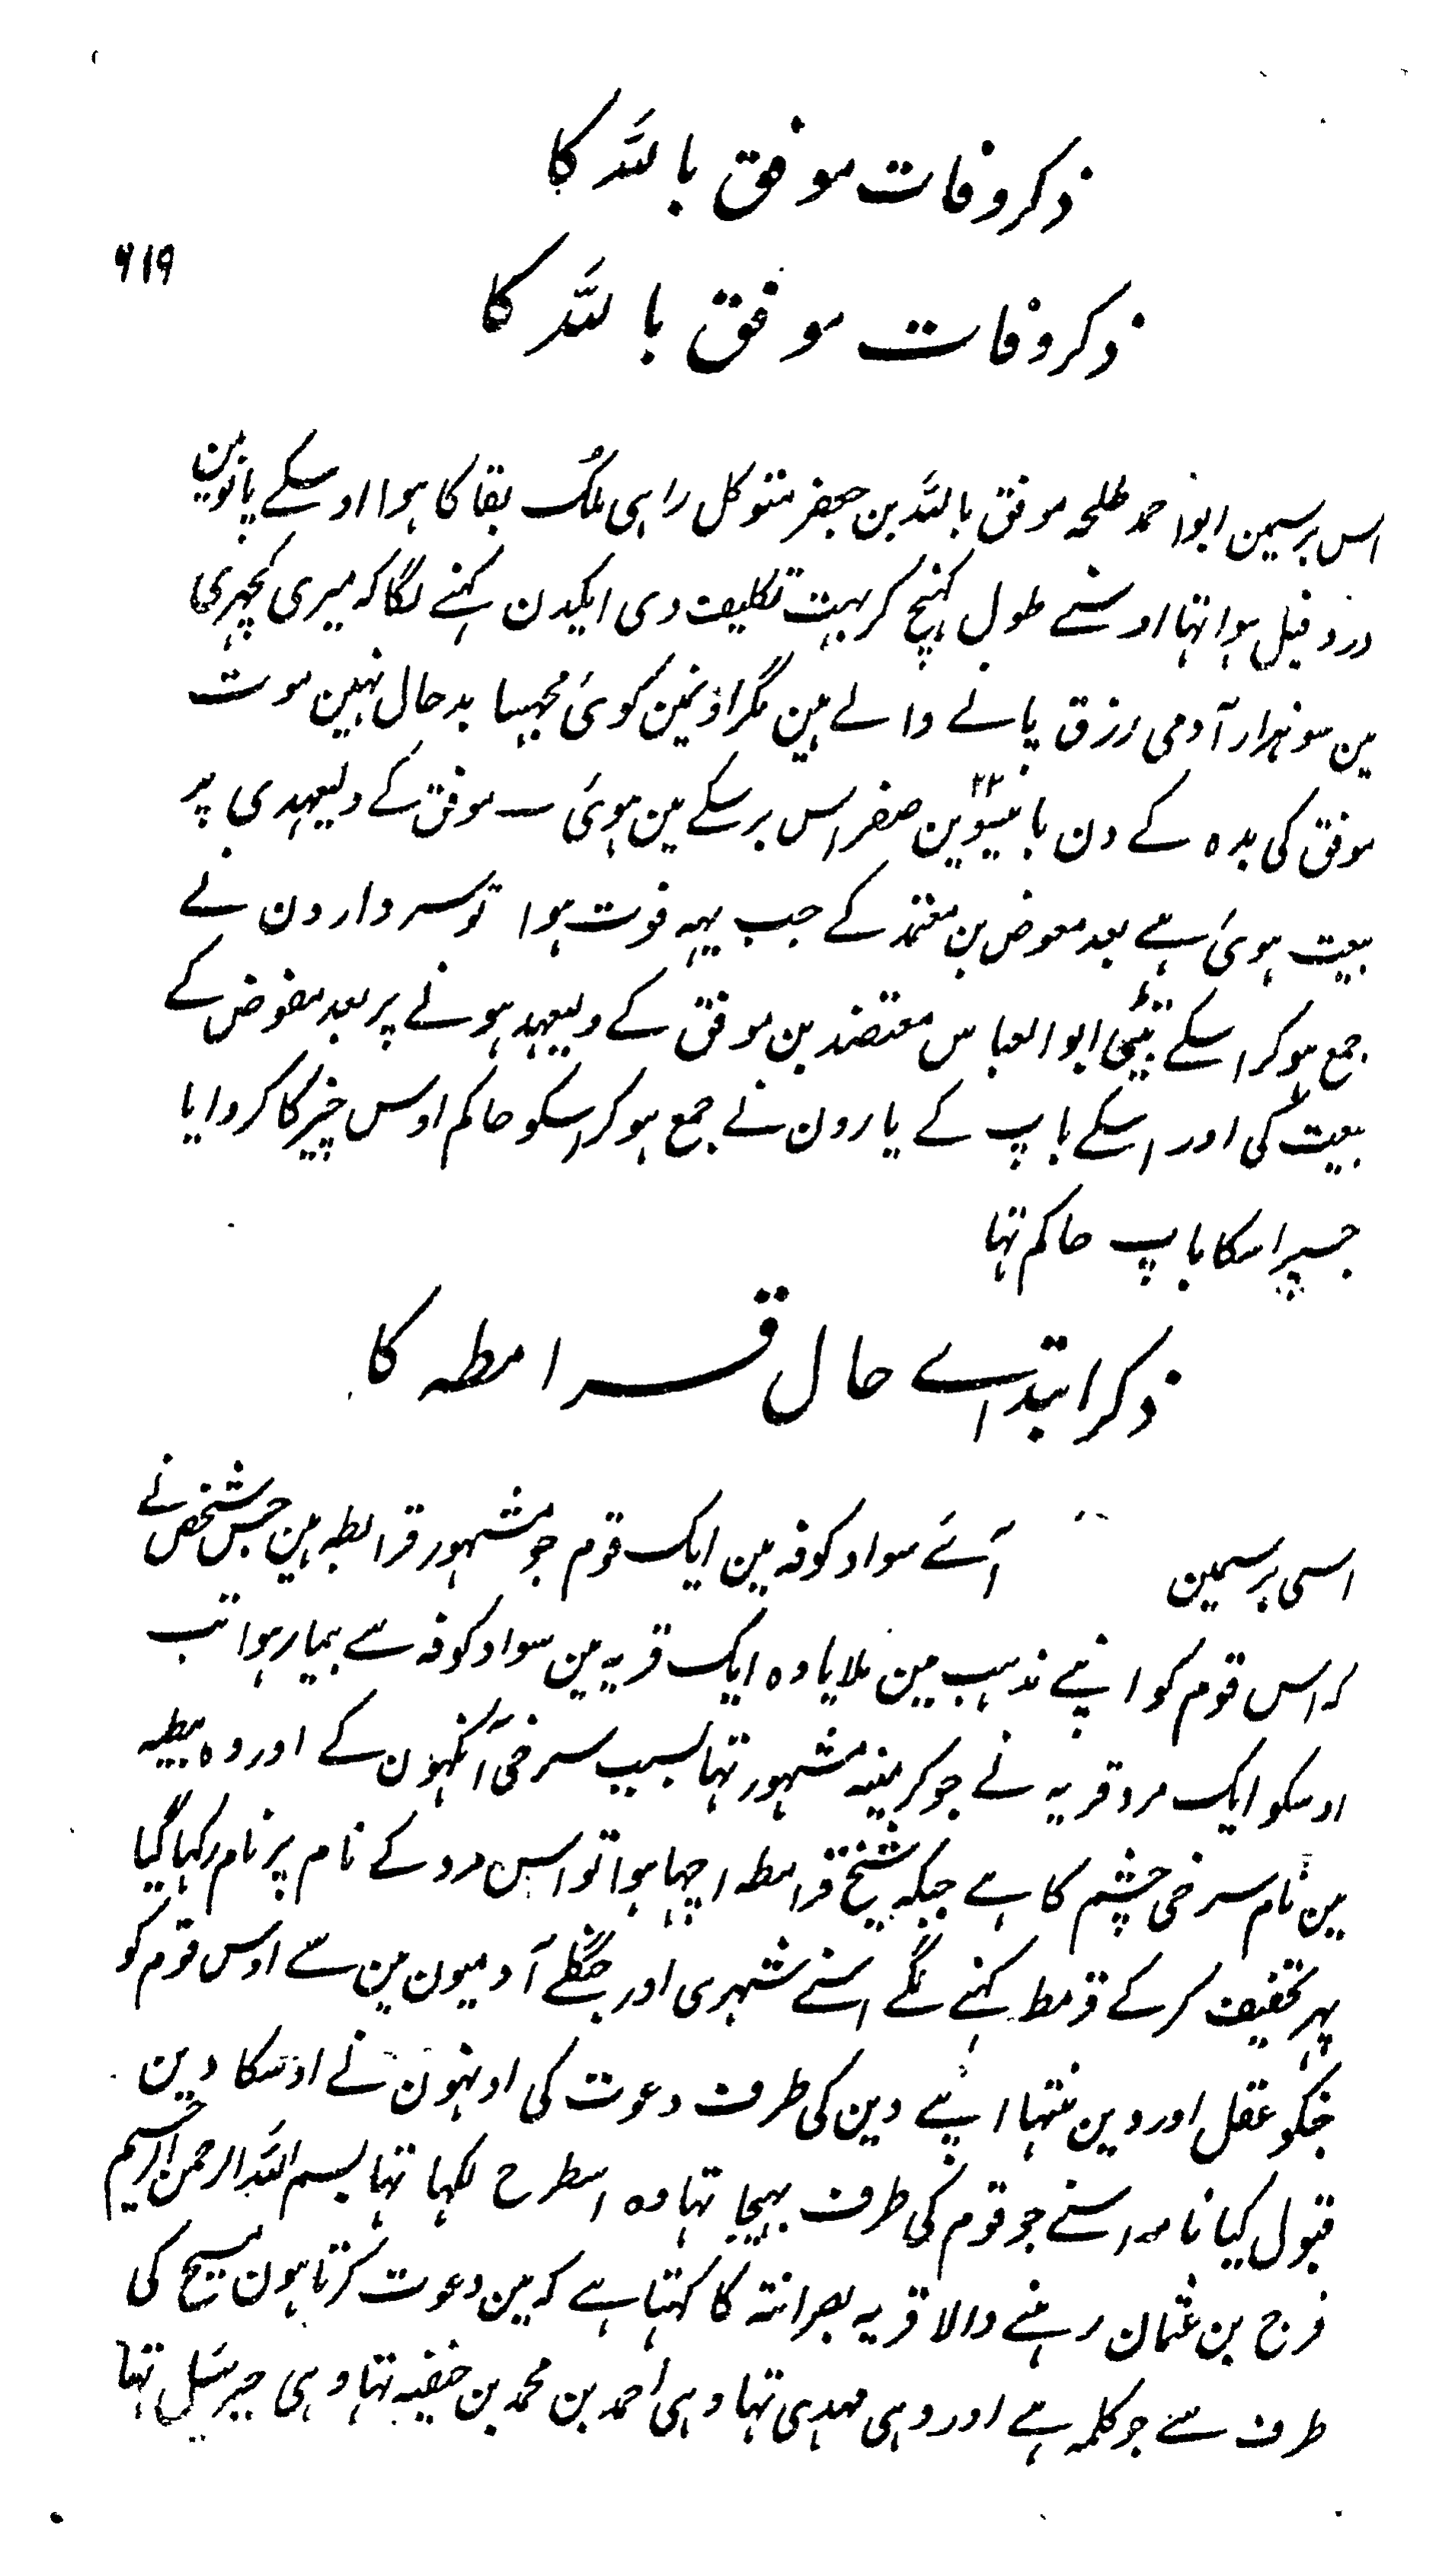 ذکر وفات موفق باللہ کا
۶۱۹
ذکر وفات موفق باللہ کا
اس برسیمن ابو احمد طلحہ موفق باللہ بن جعفر متوکل راہی ملک بقا کا ہوا اوسکے پانوین مین
درد فیل ہوا تہا اوسنے طول کہنچ کر بہت تکلیف دی ایکدن کہنے لگا کہ میری کچہری
مین سو ہزار آدمی رزق پانے والے ہین مگر اونمین کوئی مجہسا بدحال نہین موت
موفق کی بدہ کے دن بائیسوین ۲۲ صفر اس برسکے مین ہوئی موفق کے ولیعہدی پر
بیعت ہوئی ہے بعد معوض بن معتمد کے جب یہہ فوت ہوا تو سردارون نے
جمع ہوکر اسکے بیٹی ابو العباس معتضد بن موفق کے ولیعہد ہونے پر بعد مفوض کے
بیعت کی اور اسکے باپ کے یارون نے جمع ہوکر اسکو حاکم اوس چیز کا کروایا
جسپر اسکا باپ حاکم تہا
ذکر ابتداے حال قرامطہ کا
اسی برسیمین آئے سواد کوفہ مین ایک قوم جو مشہور قرامطہ ہین جس شخص نے
کہ اس قوم کو اپنے مذہب مین ملایا وہ ایک قریہ مین سواد کوفہ سے بیمار ہوا تب
اوسکو ایک مرد قریہ نے جو کرمیتہ مشہور تہا بسبب سرخی آنکہون کے اور وہ نبطیہ
مین نام سرخی چشم کا ہے جبکہ شیخ قرامطہ اچہا ہوا تو اس مرد کے نام پر نام رکہا گیا
پہر تخفیف کرکے قرمط کہنے لگے اسنے شہری اور جنگلے آدمیون مین سے اوس قوم کو
جنکو عقل اور دین نتہا اپنے دین کی طرف دعوت کی اونہون نے اوسکا دین
قبول کیا نامہ اسنے جو قوم کی طرف بہیجا تہا وہ اسطرح لکہا تہا بسم اللہ الرحمن الرحیم
فرج بن عثمان رہنے والا قریہ بصرانتہ کا کہتا ہے کہ مین دعوت کرتا ہون مسیح کی
طرف سے جو کلمہ ہے اور وہی مہدی تہا وہی احمد بن محمد بن حنفیہ تہا وہی جبرئیل تہا